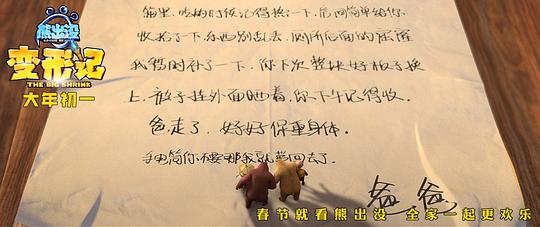 熊出没
BOONIE BEARS
变形记
THE BIG SHRINK
大年初一
锅里,吃的时候记得一下,房间简单给你
收拾了一下,东西别乱丢,厕所后面的
我暂时补了一下,你下次整块好板子换
上,被子挂外面晒着,你下午记得收。
爸走了,好好保重身体。
手电筒你不要那我就回去了。
爸爸
春节就看熊出没 全家一起更欢乐